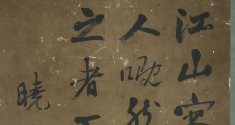 江山
人嘅
之者
曉